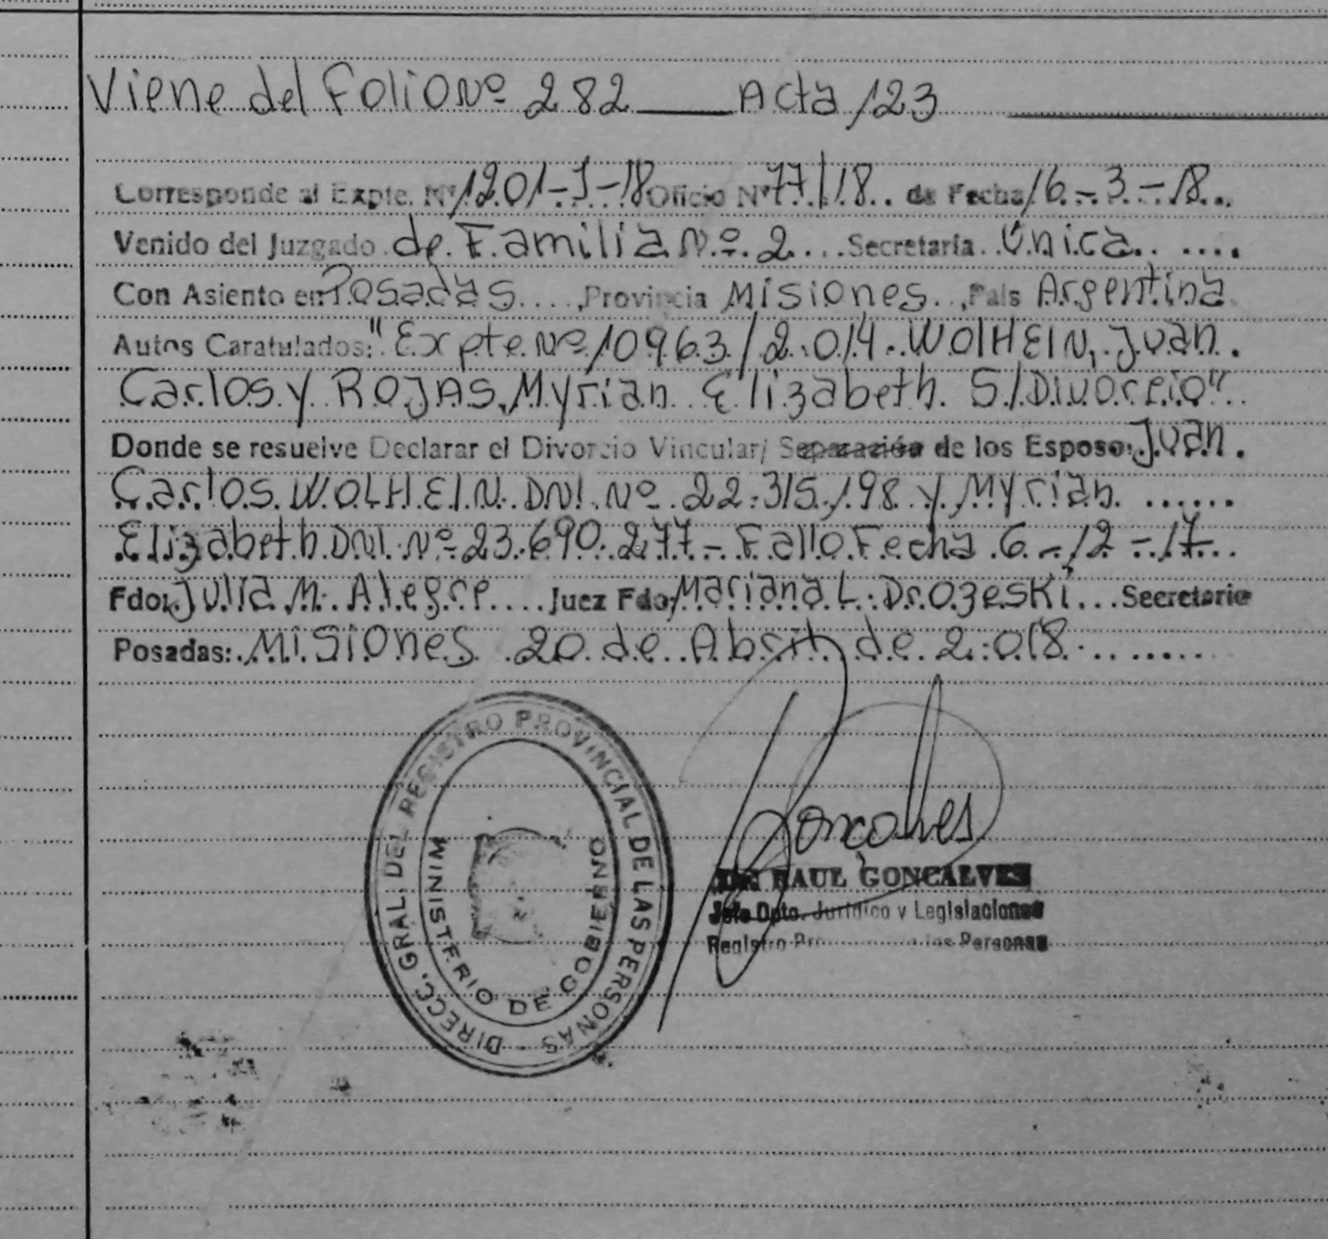 Viene del Folio Nº 282 ____ Acta 123
Corresponde al Expte. Nº 1201-J-18 Oficio Nº 77/18.. de Fecha 16.-3.-18...
Venido del Juzgado de Familia Nº 2 ... Secretaría Única. .....
Con Asiento en Posadas ...., Provincia Misiones.., País Argentina
Autos Caratulados: "Expte Nº 10963/2.014. WOlHEIN, Juan.
Carlos y ROJAS, Myrian Elizabeth S/Divorcio".
Donde se resuelve Declarar el Divorcio Vincular/ Separación de los Esposo: Juan.
Carlos. WOLHEIN. DNI. Nº 22.315.198 y Myrian. ......
Elizabeth. DNI. Nº 23.690.277.- Fallo Fecha 6.-12-17...
Fdo. Julia M. Alegre.... Juez Fdo. Mariana L. Drozeski... Secretario
Posadas: Misiones 20 de Abril de 2.018. .......
DIRECC. GRAL. DEL REGISTRO PROVINCIAL DE LAS PERSONAS -
MINISTERIO DE GOBIERNO
Goncalves
DR. RAUL GONCALVES
Jefe Dpto. Jurídico y Legislaciones
Registro las Personas